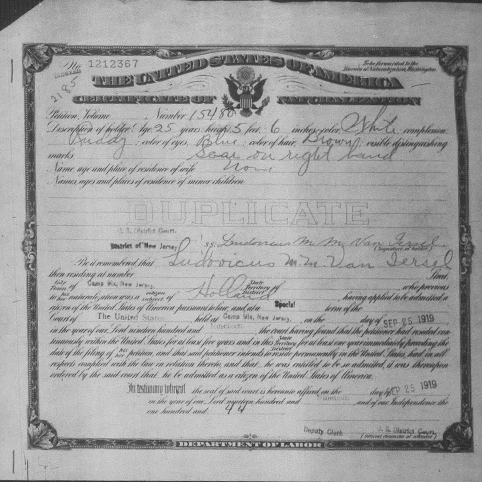 No. 1212367
To be forwarded to the Bureau of Naturalization, Washington.
2185
THE UNITED STATES OF AMERICA
CERTIFICATE OF NATURALIZATION
Petition, Volume Number 15480
Description of holder: Age, 25 years; height, 5 feet, 6 inches; color, White; complexion,
Ruddy; color of eyes, Blue; color of hair, Brown; visible distinguishing
marks Scar on right hand
Name, age and place of residence of wife None
Names, ages and places of residence of minor children
DUPLICATE
U. S. District Court,
District of New Jersey ss: Ludovicus M. M. Van Iersel
(Signature of holder)
Be it remembered, that Ludovicus M. M. Van Iersel
then residing at number Street
City Town of Camp Dix, New Jersey, State Territory District who previous
to his her naturalization was a citizen subject of Holland, having applied to be admitted a
citizen of the United States of America pursuant to law, and at a Special term of the
Court of The United States held at Camp Dix, New Jersey, on the day of SEP 25 1919
in the year of our Lord nineteen hundred and the court having found that the petitioner had resided con-
tinuously within the United States for at least five years and in this State Territory District for at least one year immediately preceding the
day of the filing of his her petition, and that said petitioner intends to reside permanently in the United States, had in all
respects complied with the law in relation thereto, and that he was entitled to be so admitted, it was thereupon
ordered by the said court that he be admitted as a citizen of the United States of America.
In testimony whereof the seal of said court is hereunto affixed on the day of SEP 25 1919
in the year of our Lord nineteen hundred and and of our Independence the
one hundred and 44
Deputy Clerk U. S. District Court,
(Official character of attestor)
DEPARTMENT OF LABOR